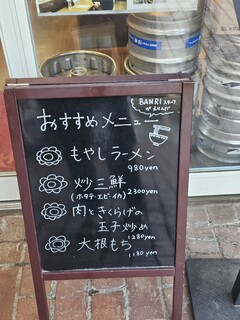 BANRIスタッフ
がえらんだ
おすすめメニュー
もやしラーメン
980yen
炒三鮮
(ホタテ・エビ・イカ) 2300yen
肉ときくらげの
玉子炒め
1280yen
大根もち
1180yen